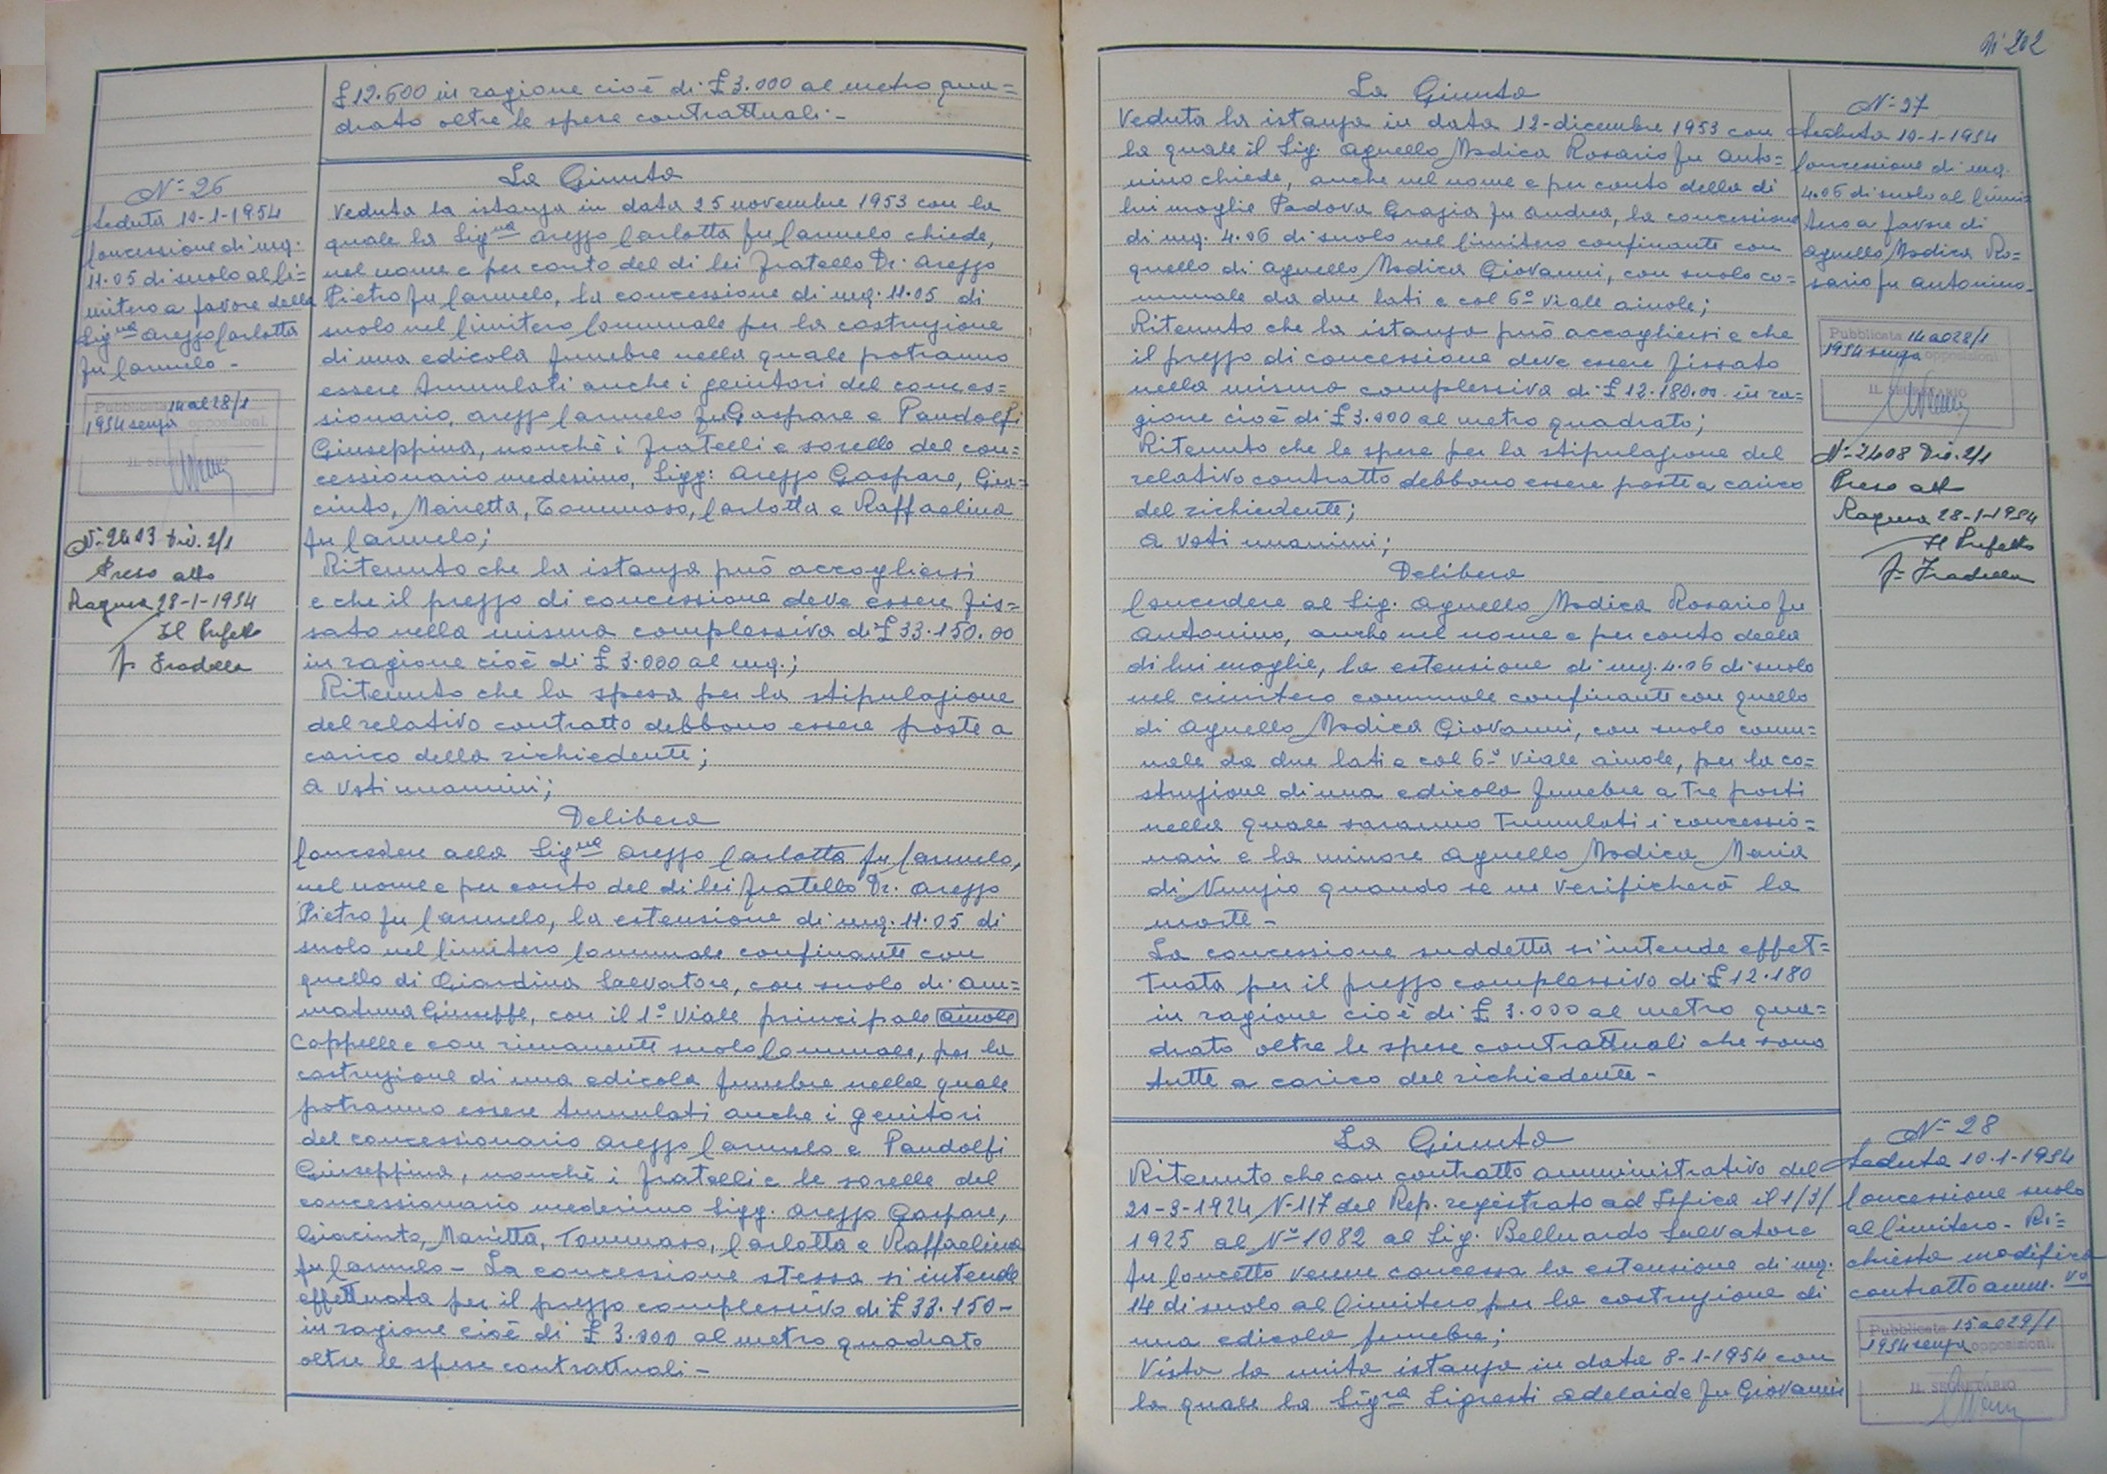 £12.600 in ragione cioè di £3.000 al metro qua=
drato oltre le spese contrattuali.-
N° 26
Seduta 10-1-1954
Concessione di mq.
11.05 di suolo al Ci=
mitero a favore della
Sig.na Arezzo Carlotta
fu Carmelo -
Pubblicata 14 al 28/1
1954 senza opposizioni.
IL SEGRETARIO
N° 2403 Div. 2/1
Preso atto
Ragusa 28-1-1954
Il Prefetto
f. Fradella
La Giunta
Veduta la istanza in data 25 novembre 1953 con la
quale la Sig.na Arezzo Carlotta fu Carmelo chiede,
nel nome e per conto del di lei fratello Dr. Arezzo
Pietro fu Carmelo, la concessione di mq. 11.05 di
suolo nel Cimitero Comunale per la costruzione
di una edicola funebre nella quale potranno
essere tumulati anche i genitori del conces=
sionario, Arezzo Carmelo fu Gaspare e Pandolfi
Giuseppina, nonchè i fratelli e sorelle del con=
cessionario medesimo, Sigg: Arezzo Gaspare, Gia=
cinto, Marietta, Tommaso, Carlotta e Raffaelina
fu Carmelo;
Ritenuto che la istanza può accogliersi
e che il prezzo di concessione deve essere fis=
sato nella misura complessiva di £33.150.00
in ragione cioè di £ 3.000 al mq.;
Ritenuto che la spesa per la stipulazione
del relativo contratto debbono essere poste a
carico della richiedente;
a voti unanimi;
Delibera
Concedere alla Sig.na Arezzo Carlotta fu Carmelo,
nel nome e per conto del di lei fratello Dr. Arezzo
Pietro fu Carmelo, la estensione di mq. 11.05 di
suolo nel Cimitero Comunale confinante con
quello di Giardina Salvatore, con suolo di Am=
matuna Giuseppe, con il 1° Viale principale aiuole
Cappelle e con rimanente suolo Comunale, per la
costruzione di una edicola funebre nella quale
potranno essere tumulati anche i genitori
del concessionario Arezzo Carmelo e Pandolfi
Giuseppina, nonchè i fratelli e le sorelle del
concessionario medesimo Sigg. Arezzo Gaspare,
Giacinto, Marietta, Tommaso, Carlotta e Raffaelina
fu Carmelo - La concessione stessa si intende
effettuata per il prezzo complessivo di £ 33.150-
in ragione cioè di £ 3.000 al metro quadrato
oltre le spese contrattuali -
N° 202
La Giunta
Veduta la istanza in data 12-dicembre 1953 con
la quale il Sig. Agnello Modica Rosario fu Anto=
nino chiede, anche nel nome e per conto della di
lui moglie Padova Grazia fu Andrea, la concessione
di mq. 4.06 di suolo nel Cimitero confinante con
quello di Agnello Modica Giovanni, con suolo co=
munale da due lati e col 6° viale aiuole;
Ritenuto che la istanza può accogliersi e che
il prezzo di concessione deve essere fissato
nella misura complessiva di £ 12.180.00 in ra=
gione cioè di £3.000 al metro quadrato;
Ritenuto che le spese per la stipulazione del
relativo contratto debbono essere poste a carico
del richiedente;
a voti unanimi;
Delibera
Concedere al Sig. Agnello Modica Rosario fu
Antonino, anche nel nome e per conto della
di lui moglie, la estensione di mq. 4.06 di suolo
nel cimitero comunale confinante con quello
di Agnello Modica Giovanni, con suolo comu=
nale da due lati e col 6° Viale aiuole, per la co=
struzione di una edicola funebre a tre posti
nella quale saranno tumulati i concessio=
nari e la minore Agnello Modica Maria
di Nunzio quando se ne verificherà la
morte -
La concessione suddetta si intende effet=
tuata per il prezzo complessivo di £12.180
in ragione cioè di £ 3.000 al metro qua=
drato oltre le spese contrattuali che sono
tutte a carico del richiedente -
N° 27
Seduta 10-1-1954
Concessione di mq.
4.06 di suolo al Cimi=
tero a favore di
Agnello Modica Ro=
sario fu Antonino-
Pubblicata 14 al 28/1
1954 senza opposizioni
IL SEGRETARIO
N° 2408 Div. 2/1
Preso atto
Ragusa 28-1-1954
Il Prefetto
f. Fradella
La Giunta
Ritenuto che con contratto amministrativo del
20-3-1924 N. 117 del Rep. registrato ad Ispica il 1/3/
1925 al N° 1082 al Sig. Belluardo Salvatore
fu Concetto venne concessa la estensione di mq.
14 di suolo al Cimitero per la costruzione di
una edicola funebre;
Vista la unita istanza in data 8-1-1954 con
la quale la Sig.ra Sigresti Adelaide fu Giovanni
N° 28
Seduta 10-1-1954
Concessione suolo
al Cimitero - Ri=
chiesta modifica
contratto amm.vo
Pubblicata 15 al 29/1
1954 senza opposizioni.
IL SEGRETARIO